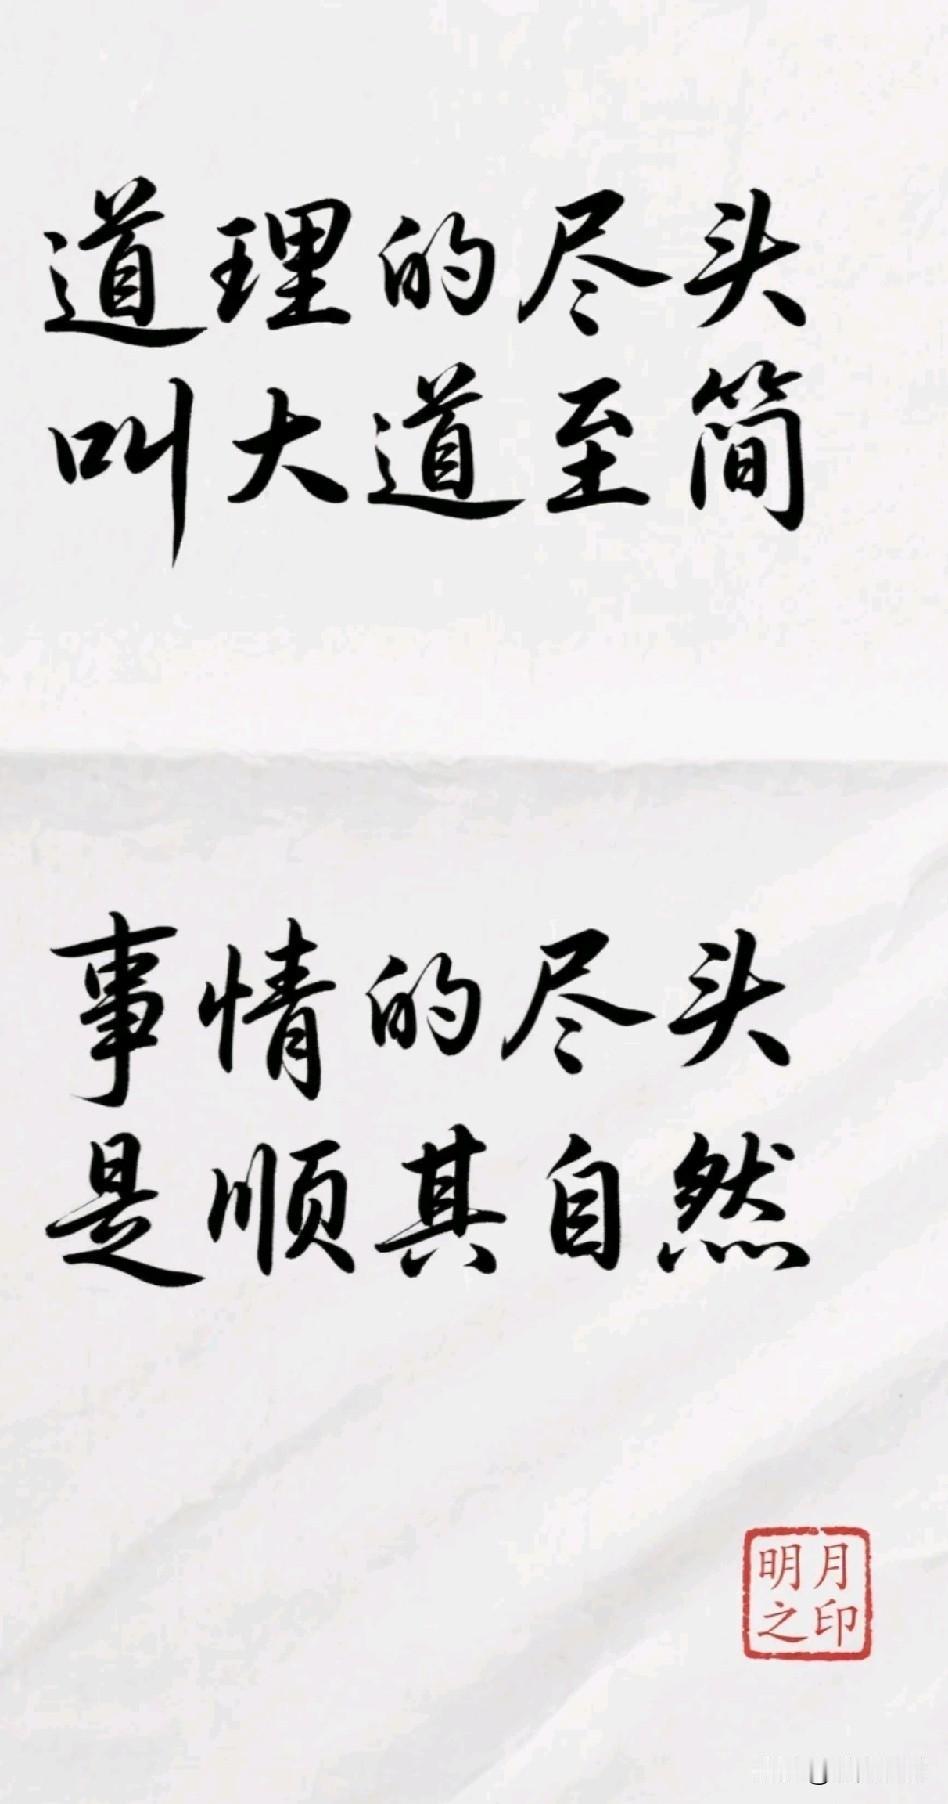 道理的尽头
叫大道至简
事情的尽头
是顺其自然
明月
之印